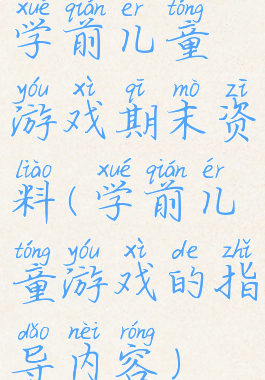 xué qián ér tóng
学前儿童
yóu xì qī mò zī
游戏期末资
liào xué qián ér
料(学前儿
tóng yóu xì de zhǐ
童游戏的指
dǎo nèi róng
导内容)